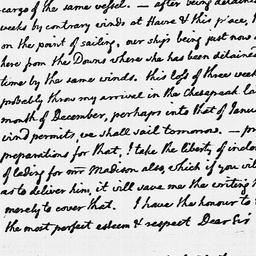 cargo of the same vessel. — after being detained
weeks by contrary winds at Havre & this place,
on the point of sailing, our ship being just now
here from the Downs where she has been detained
time by the same winds. this loss of three week
probably throw my arrival in the Chesapeak
month of December, perhaps into that of Janu
wind permits, we shall sail tomorrow. — pr
preparations for that, I take the liberty of inclo
of lading for mr Madison also, which if you wil
as to deliver him, it will save me the writing
merely to cover that. I have the honour to
the most perfect esteem & respect Dear Sir